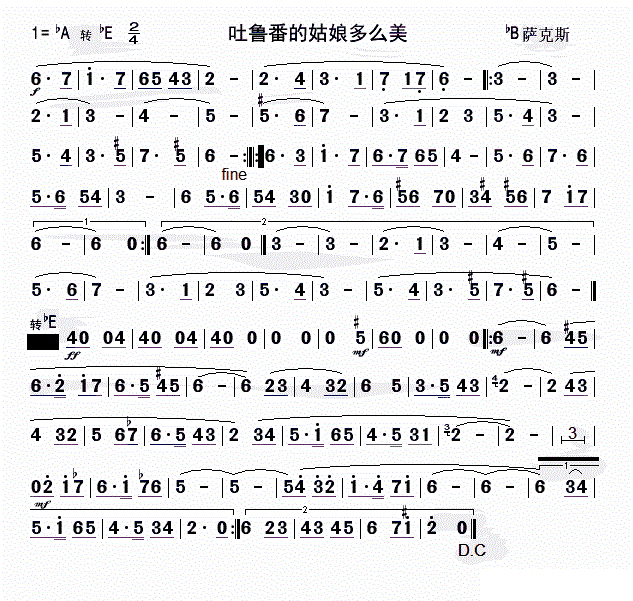 1=♭A 转 ♭E 2/4 吐鲁番的姑娘多么美 ♭B 萨克斯
6·7|i·7|65 43|2 -|2·4|3·1|7 17|6 -|:3 -|3 -|
2·1|3 -|4 -|5 -|#5·6|7 -|3·1|2 3|5·4|3 -|
5·4|3·#5|7·#5|6 -:||:6·3|i·7|6·7 65|4 -|5·6|7·6|
fine
5·6 54|3 -|6 5·6|54 30|i 7·6|#56 70|3#4 #56|7 i7|
1 2
6 -|6 0:|6 -|6 0|3 -|3 -|2·1|3 -|4 -|5 -|
5·6|7 -|3·1|2 3|5·4|3 -|5·4|3·#5|7·#5|6 -|
转♭E
40 04|40 04|40 0|0 0|0 #5|60 0|0 0|:6 -|6 #45|
ff mf mf
6·2 i7|6·5 #45|6 -|6 23|4 32|6 5|3·5 43|2 -|2 43|
4 32|5 6♭7|6·5 43|2 34|5·i 65|4·5 31|2 -|2 -|3|
02 i♭7|6·i ♭76|5 -|5 -|54 32|i·4 7i|6 -|6 -|6 34|
mf 1
5·i 65|4·5 34|2·0:|6 23|43 45|6 7#i|2 0|
2
D.C